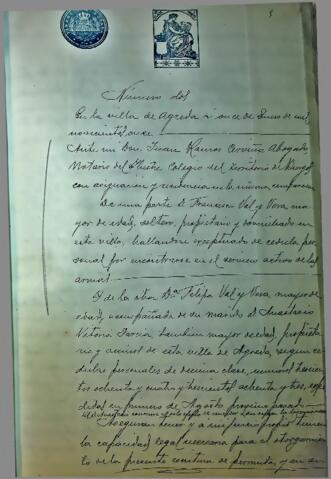 Número dos
En la villa de Agreda á once de Enero de mil
novecientos once
Ante mi Don Juan Ramos Cerviño Abogado
Notario del Ilustre Colegio del territorio de Burgos
con asignacion y residencia en la misma, comparecen
De una parte D. Francisco Val y Vera, ma
yor de edad, soltero, propietario y domiciliado en
esta villa, hallandose exceptuado de cedula per
sonal por encontrarse en el servicio activo de las
armas
Y de la otra Dª Felipa Val y Vera, mayor de
edad, acompañada de su marido D. Anastasio
Victoria Garcia, tambien mayor de edad, propieta
rio y vecinos de esta villa de Agreda segun ce
dulas personales de decima clase, numeros doscien
tos ochenta y cuatro y doscientos ochenta y tres, expe
didas en primero de Agosto proximo pasado
Aseguran tener y a mi juicio tienen
la capacidad legal necesaria para el otorgamien
to de la presente escritura de permuta, y en su